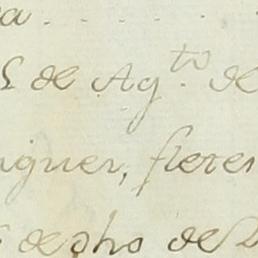 a . . . .
de Agto. de
nguer, fletes
de dho de